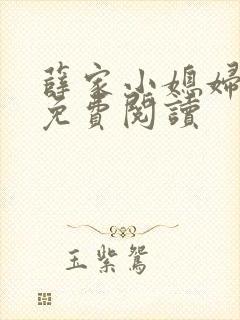 薛家小媳婦
免費閱讀
玉紫鴛